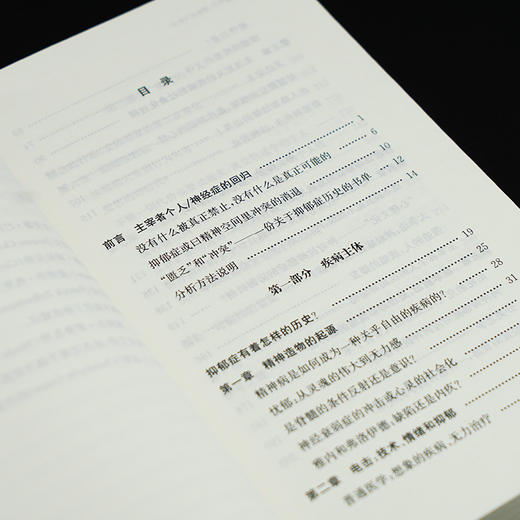 目 录
前言 主宰者个人/神经症的回归 …… 1
没有什么被真正禁止,没有什么是真正可能的 …… 6
抑郁症或曰精神空间里冲突的消退 …… 10
“匮乏”和“冲突”——一份关于抑郁症历史的书单 …… 12
分析方法说明 …… 14
第一部分 疾病主体
抑郁症有着怎样的历史? …… 19
第一章 精神造物的起源 …… 25
精神病是如何成为一种关乎自由的疾病的? …… 28
忧郁,从灵魂的伟大到无力感 …… 31
是脊髓的条件反射还是意识? ……
神经衰弱症的冲击或心灵的社会化
雅内和弗洛伊德:缺陷还是内疚? ……
第二章 电击:技术、情绪和抑郁
普通医学:想象的疾病、无力治疗